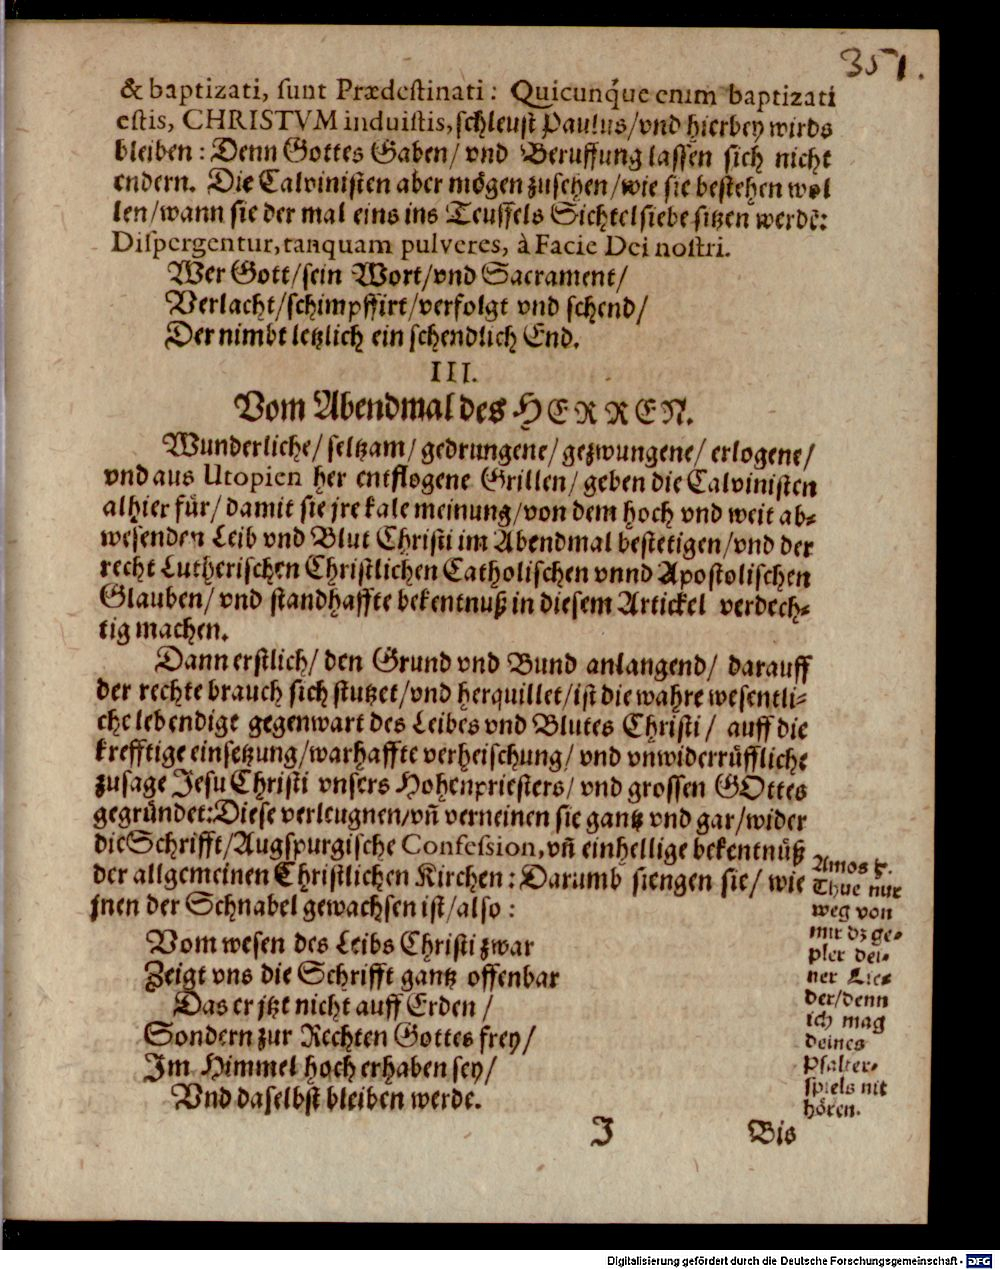 351.
& baptizati, sunt Prædestinati: Quicunq́ue enim baptizati
estis, CHRISTVM induistis, schleust Paulus/vnd hierbey wirds
bleiben: Denn Gottes Gaben/ vnd Beruffung lassen sich nicht
endern. Die Calvinisten aber mögen zusehen/wie sie bestehen wol
len/wann sie der mal eins ins Teuffels Sichtelsiebe sitzen werdẽ:
Dispergentur, tanquam pulveres, à Facie Dei nostri.
Wer Gott/sein Wort/vnd Sacrament/
Verlacht/schimpffirt/verfolgt vnd schend/
Der nimbt letzlich ein schendlich End.
III.
Vom Abendmal des HERREN.
Wunderliche/ seltzam/ gedrungene/ gezwungene/ erlogene/
vnd aus Utopien her entflogene Grillen/ geben die Calvinisten
alhier für/ damit sie jre kale meinung/von dem hoch vnd weit ab-
wesenden Leib vnd Blut Christi im Abendmal bestetigen/vnd der
recht Lutherischen Christlichen Catholischen vnnd Apostolischen
Glauben/ vnd standhaffte bekentnuß in diesem Artickel verdech-
tig machen.
Dann erstlich/ den Grund vnd Bund anlangend/ darauff
der rechte brauch sich stutzet/vnd herquillet/ist die wahre wesentli-
che lebendige gegenwart des Leibes vnd Blutes Christi/ auff die
krefftige einsetzung/warhaffte verheischung/ vnd vnwiderrüffliche
zusage Jesu Christi vnsers Hohenpriesters/ vnd grossen GOttes
gegründet: Diese verleugnen/vñ verneinen sie gantz vnd gar/wider
die Schrifft/Augspurgische Confession, vñ einhellige bekentnüß
der allgemeinen Christlichen Kirchen: Darumb siengen sie/ wie
jnen der Schnabel gewachsen ist/also:
Vom wesen des Leibs Christi zwar
Zeigt vns die Schrifft gantz offenbar
Das er jtzt nicht auff Erden/
Sondern zur Rechten Gottes frey/
Im Himmel hoch erhaben sey/
Vnd daselbst bleiben werde.
Amos 5.
Thue nur
weg von
mir dz ge-
pler dei-
ner Lie-
der/denn
ich mag
deines
Psalter-
spiels nit
hören.
J
Bis
Digitalisierung gefördert durch die Deutsche Forschungsgemeinschaft - DFG